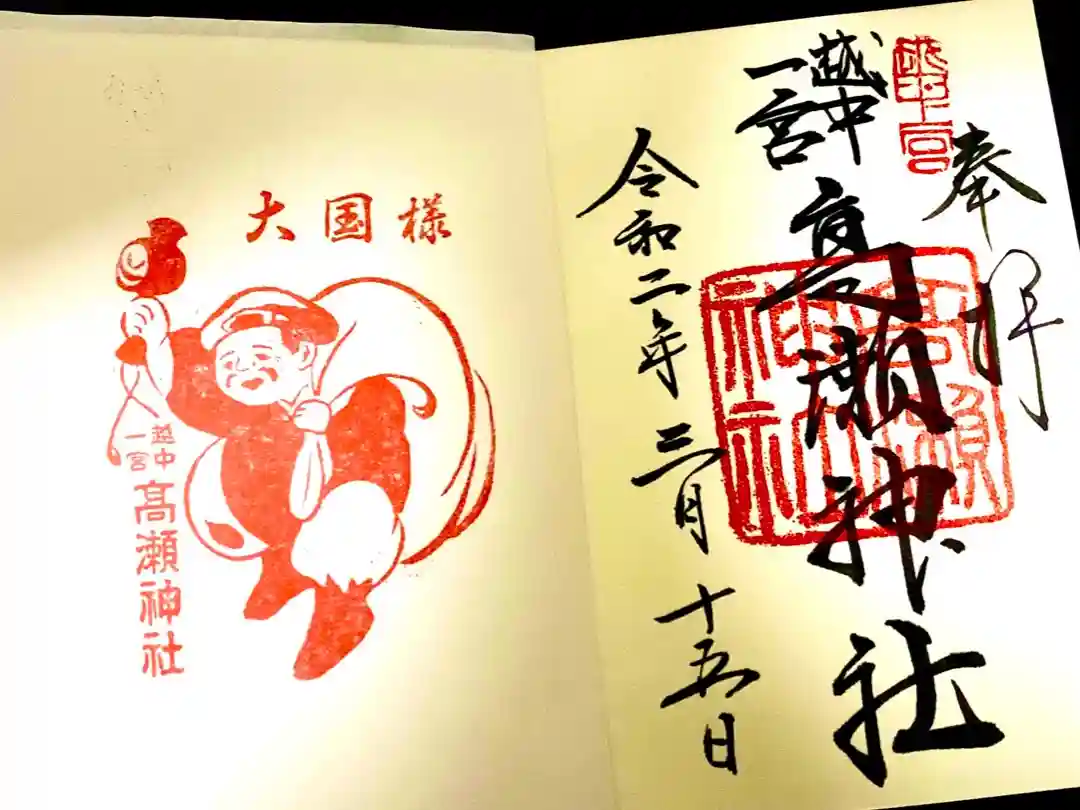 奉拝
越中
一宮
高瀬神社
高瀬
神社
令和二年三月十五日
大国様
越中
一宮
高瀬神社